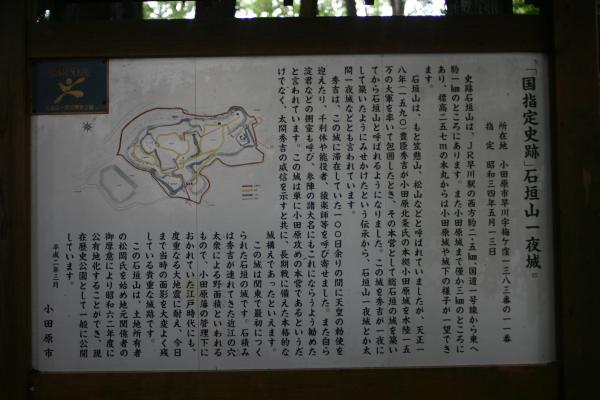 「国指定史跡」石垣山一夜城
所在地 小田原市早川字梅ケ窪一三八三番の一一番
指定 昭和三四年五月一三日
史跡石垣山は、JR早川駅の西方約二・五㎞、国道一号線から東へ
約一㎞のところにあります。また小田原城まで僅か三㎞のところに
あり、標高二五七mの本丸からは小田原城や城下の様子が一望でき
ます。
石垣山は、もと笠懸山、松山などと呼ばれていましたが、天正一
八年(一五九〇)豊臣秀吉が小田原北条氏の本拠小田原城を水陸一五
万の大軍を率いて包囲したとき、その本営として総石垣の城を築い
てから石垣山と呼ばれるようになりました。この城を秀吉が一夜に
して築いたようにみせかけたという伝承から、石垣山一夜城とか太
閤一夜城などとも言われています。
秀吉は、この城に滞在していた一〇〇日余りの間に天皇の勅使を
迎えたり、千利休や能役者、猿楽師等を呼び寄せました。また自ら
淀君などの側室も呼び、参陣の諸大名にもこれにならうよう勧めた
と言われています。この城は単に小田原攻めの本営であるというだ
けでなく、太閤秀吉の威信を示すと共に、長期戦に備えた本格的な
城構えであったといえます。
この城は関東で最初につく
られた石垣の城です。石積み
は秀吉が連れてきた近江の穴
太衆による野面積といわれる
もので、小田原藩の管理下に
おかれていた江戸時代にも、
度重なる大地震に耐え、今日
まで当時の面影を大変よく残
している貴重な城跡です。
この石垣山は、土地所有者
の松岡氏を始め地元関係者の
御厚意により昭和六二年度に
公有地化することができ、現
在歴史公園として一般に公開
しています。
平成二年三月
小田原市